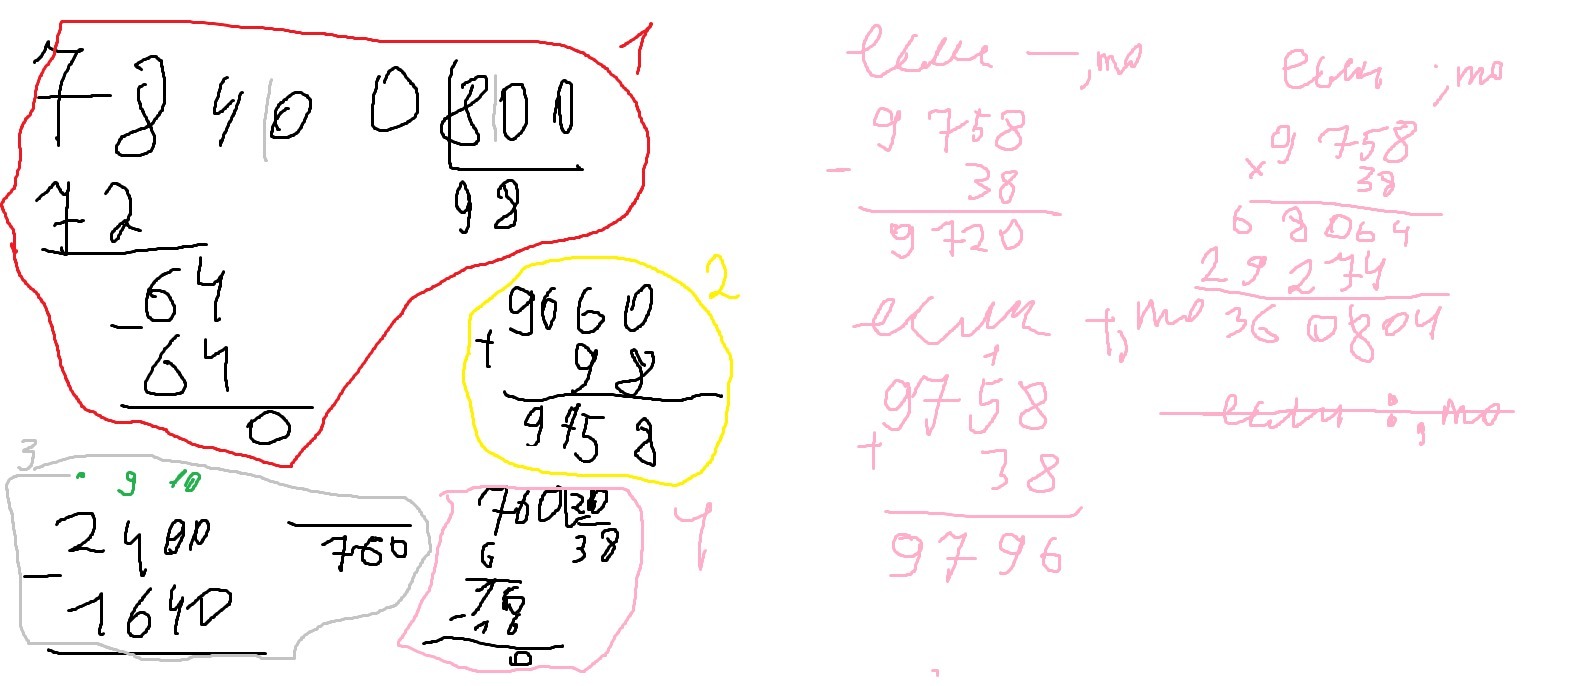 1
78400 800
72
98
64
- 64
0
2
9660
+ 98
9758
3
. 9 10
2400
- 1640
760
4
760 20
6 38
16
- 16
0
если —, то
9758
- 38
9720
если +, то
1
9758
+ 38
9796
если ; то
× 9758
38
68064
29274
360804
если :, то